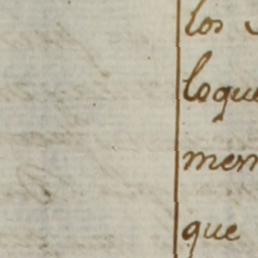 los
loque
mem
que